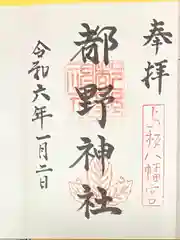 奉拝
都野神社
令和六年一月二日
八幡宮